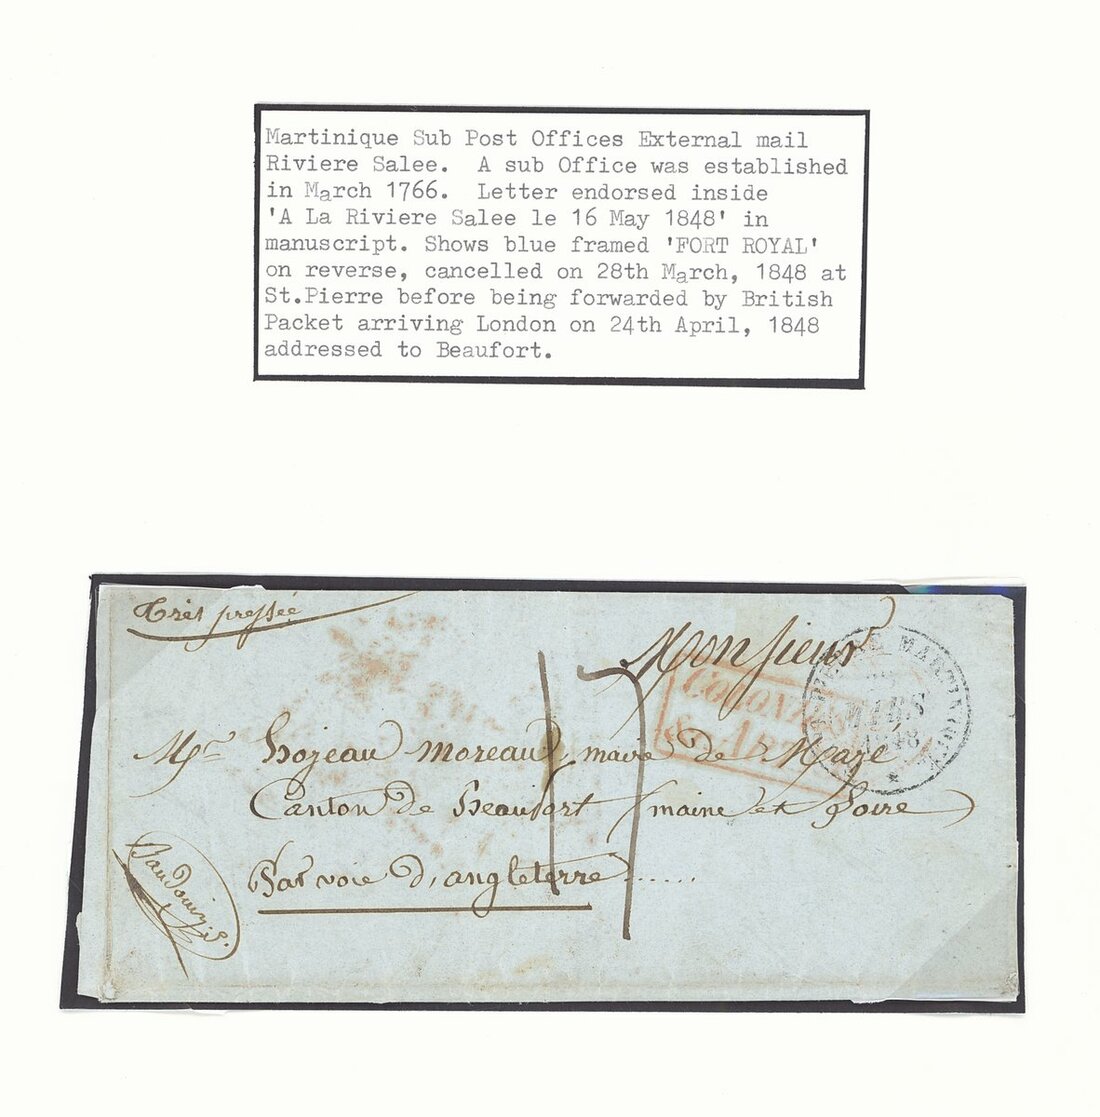 Martinique Sub Post Offices External mail
Riviere Salee. A sub Office was established
in March 1766. Letter endorsed inside
'A La Riviere Salee le 16 May 1848' in
manuscript. Shows blue framed 'FORT ROYAL'
on reverse, cancelled on 28th March, 1848 at
St.Pierre before being forwarded by British
Packet arriving London on 24th April, 1848
addressed to Beaufort.
Très pressée
Monsieur
PIERRE MARTINIQUE
MARS
1848
COLONIES
&c. ART
17
Mr. hojeau moreau, maire de Maze
Canton de Beaufort (maine et Loire)
Par voie d'angleterre......